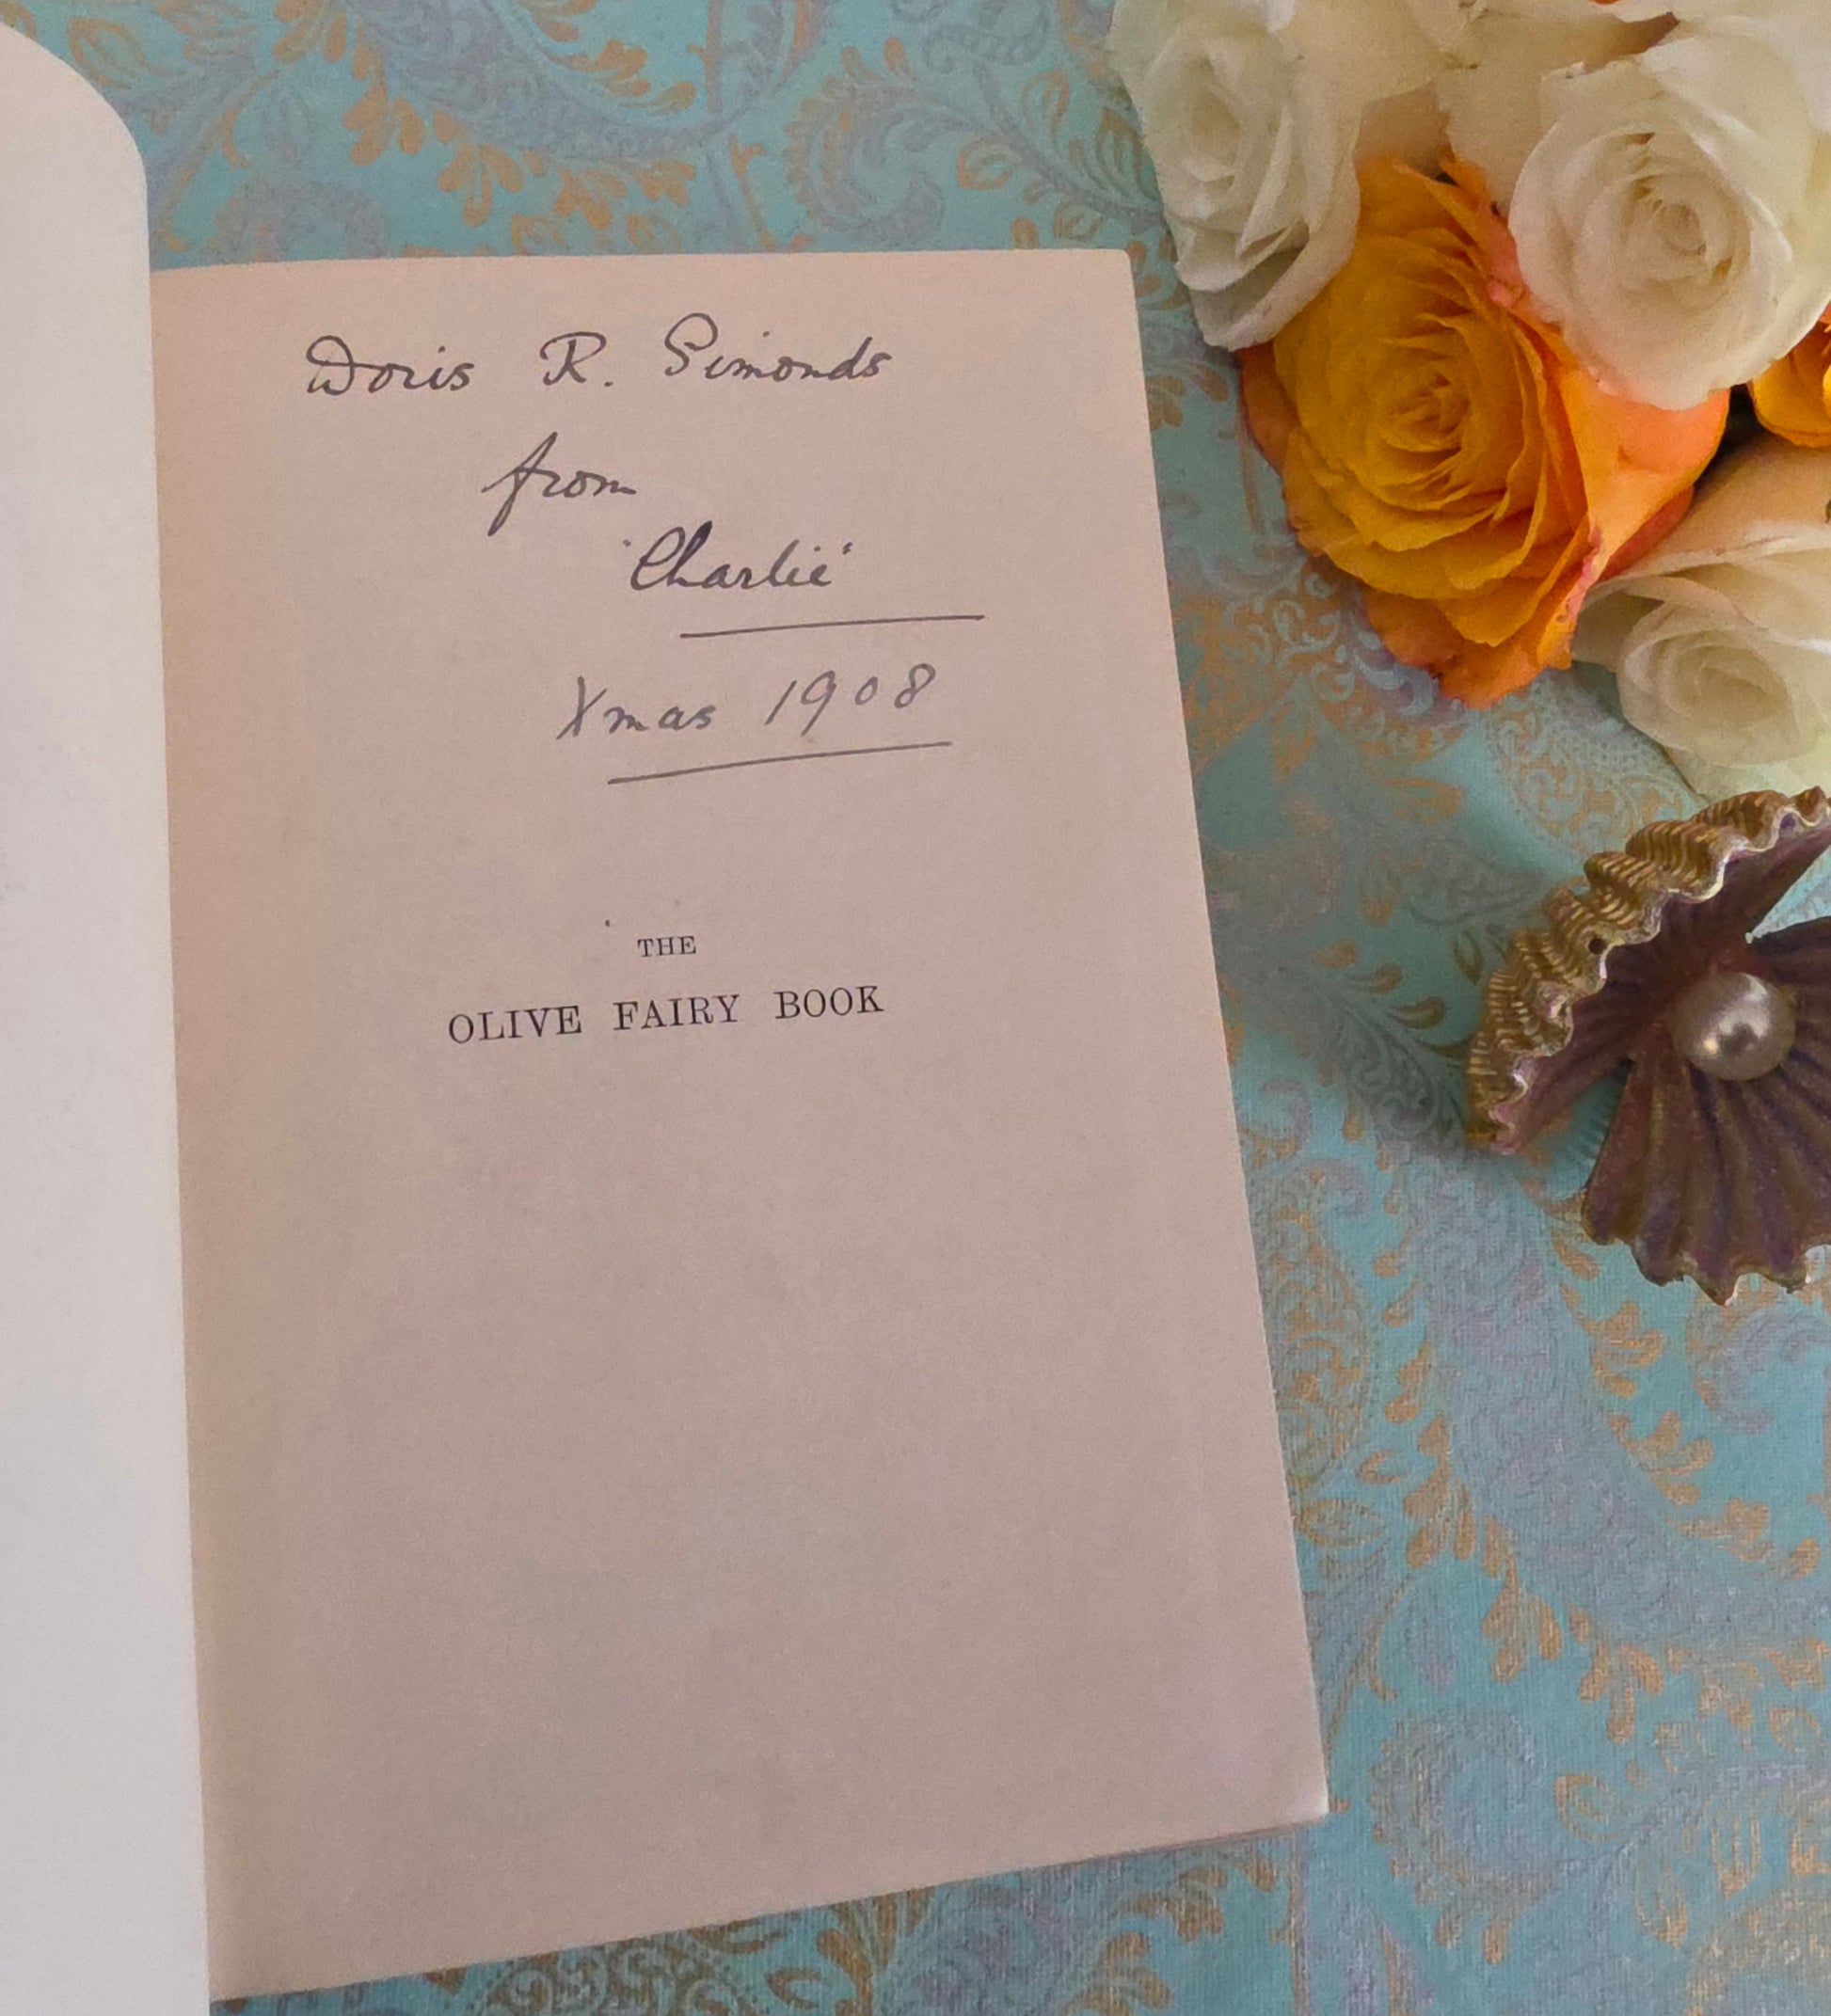 Doris R. Simonds
from
'Charlie'
Xmas 1908
THE
OLIVE FAIRY BOOK